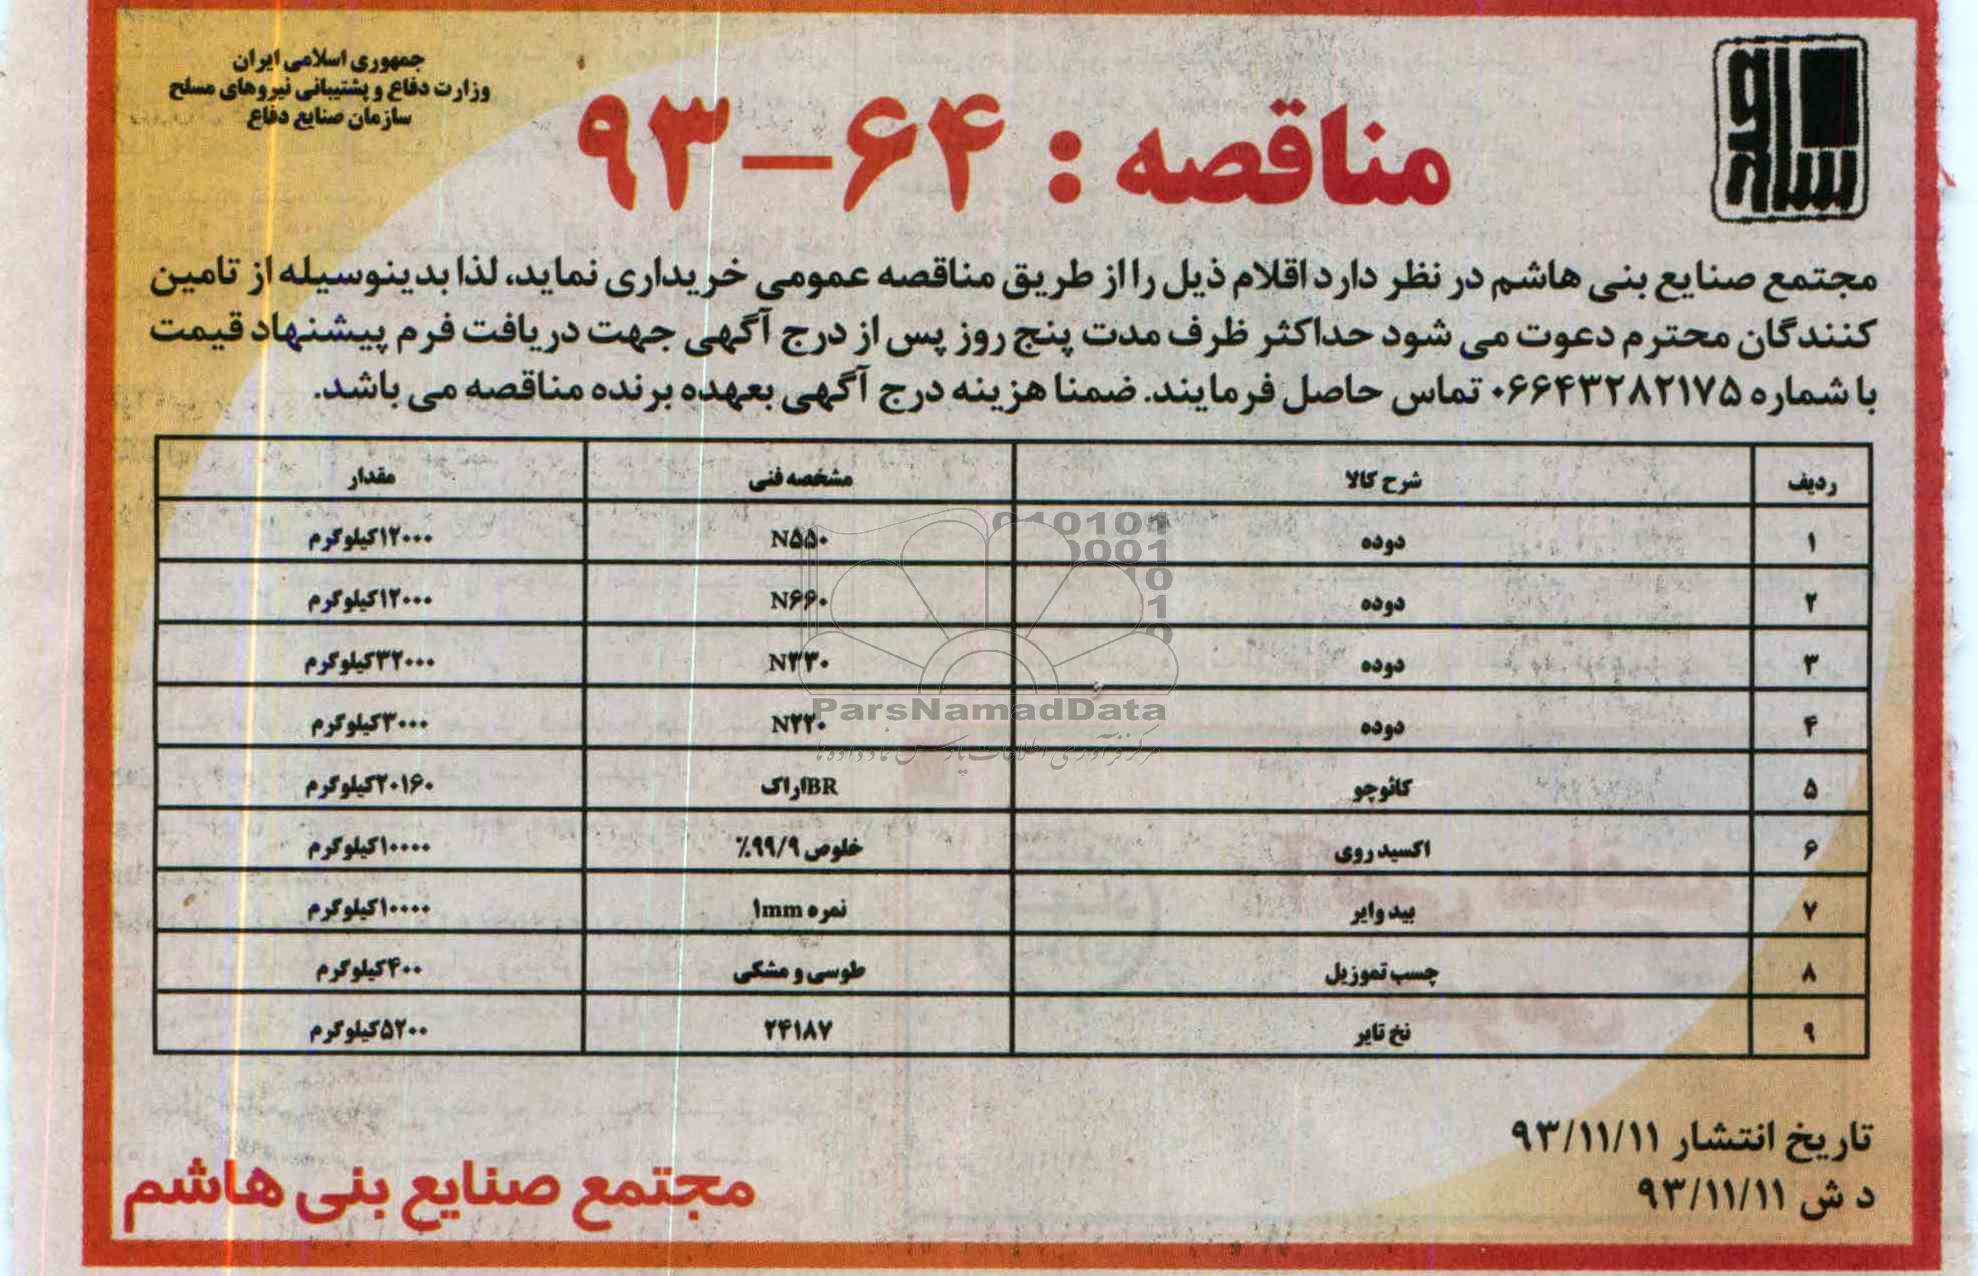 جمهوری اسلامی ایران
وزارت دفاع و پشتیبانی نیروهای مسلح
سازمان صنایع دفاع
مناقصه : ۶۴-۹۳
مجتمع صنایع بنی هاشم در نظر دارد اقلام ذیل را از طریق مناقصه عمومی خریداری نماید، لذا بدینوسیله از تامین
کنندگان محترم دعوت می شود حداکثر ظرف مدت پنج روز پس از درج آگهی جهت دریافت فرم پیشنهاد قیمت
با شماره ۰۶۶۴۳۲۸۲۱۷۵ تماس حاصل فرمایند. ضمنا هزینه درج آگهی بعهده برنده مناقصه می باشد.
ردیف شرح کالا مشخصه فنی مقدار
۱ دوده N۵۵۰ ۱۲۰۰۰کیلوگرم
۲ دوده N۶۶۰ ۱۲۰۰۰کیلوگرم
۳ دوده N۳۳۰ ۳۲۰۰۰کیلوگرم
۴ دوده N۲۲۰ ۳۰۰۰کیلوگرم
۵ کائوچو BRاراک ۲۰۱۶۰کیلوگرم
۶ اکسید روی خلوص ۹۹/۹٪ ۱۰۰۰۰کیلوگرم
۷ بید وایر نمره ۱mm ۱۰۰۰۰کیلوگرم
۸ چسب تموزیل طوسی و مشکی ۴۰۰کیلوگرم
۹ نخ تایر ۲۴۱۸۷ ۵۲۰۰کیلوگرم
ParsNamadData
مرکز فرآوری اطلاعات پارس نماد داده ها
تاریخ انتشار ۹۳/۱۱/۱۱
د ش ۹۳/۱۱/۱۱
مجتمع صنایع بنی هاشم